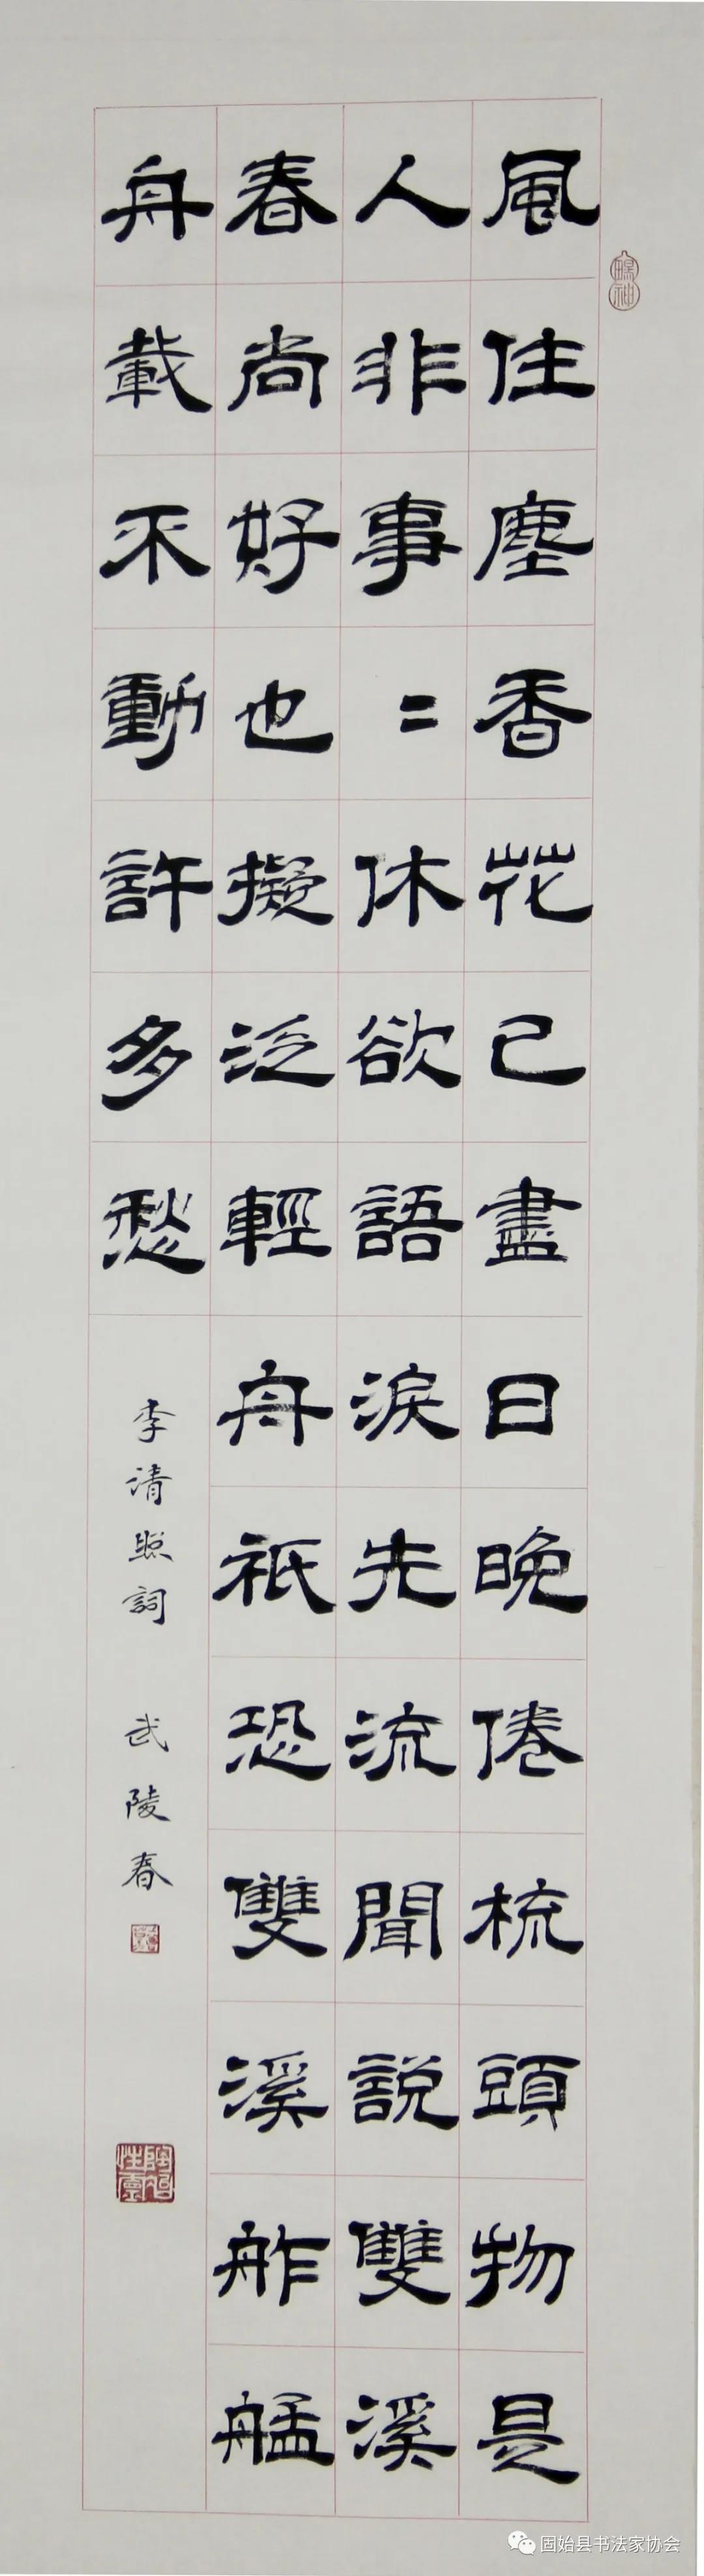 暢神
風住塵香花已盡日晚倦梳頭物是
人非事〻休欲語淚先流聞說雙溪
春尚好也擬泛輕舟祇恐雙溪舴艋
舟載不動許多愁
李清照詞 武陵春
陶冶性靈
固始县书法家协会